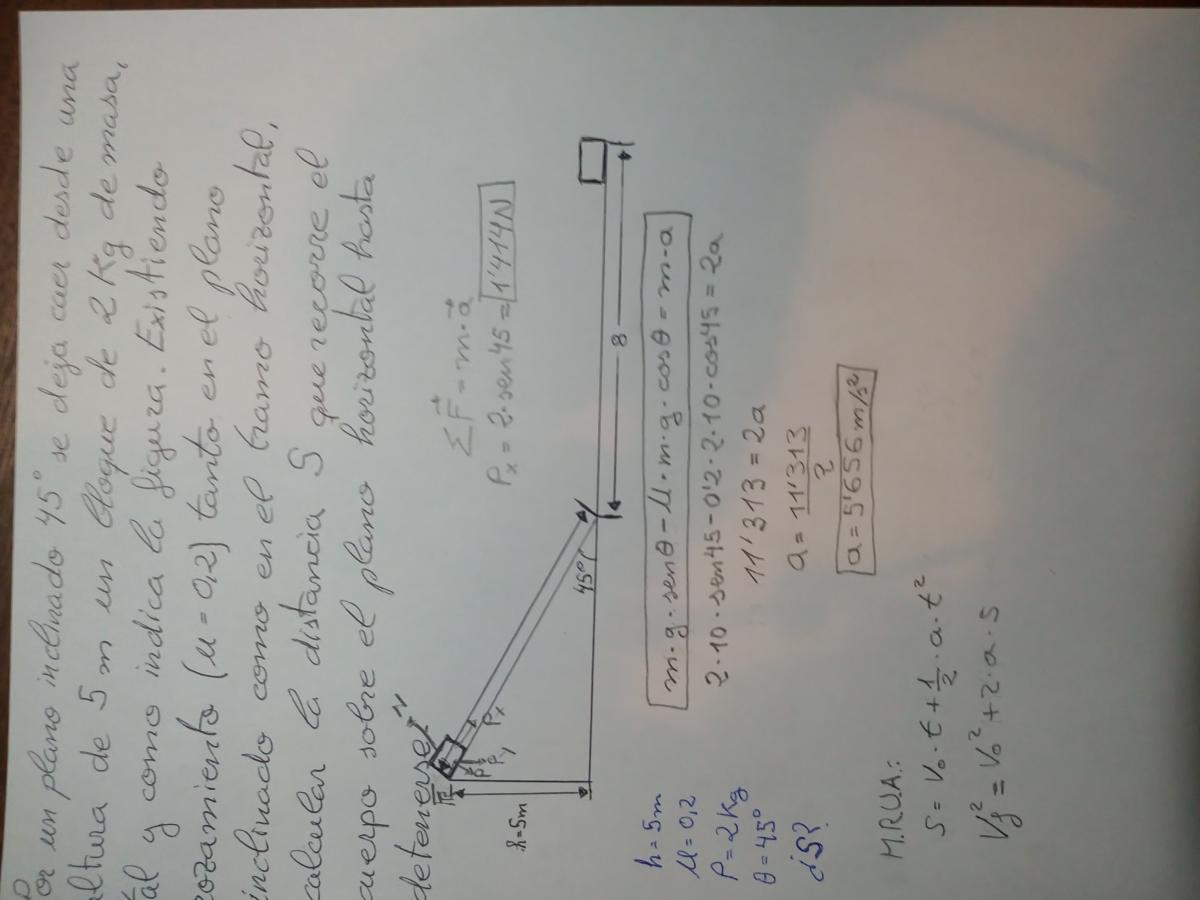 Por un plano inclinado 45° se deja caer desde una
altura de 5 m un bloque de 2 Kg de masa,
tal y como indica la figura. Existiendo
rozamiento (μ = 0,2) tanto en el plano
inclinado como en el tramo horizontal,
calcular la distancia S que recorre el
cuerpo sobre el plano horizontal hasta
detenerse.
ΣF = m·a
Px = 2·sen45 = 1'414N
N
Px
Py
P
h=5m
45°
8
h=5m
μ=0,2
P=2Kg
θ=45°
¿S?
m·g·senθ-μ·m·g·cosθ=m·a
2·10·sen45-0'2·2·10·cos45=2a
11'313=2a
a=11'313
2
a=5'656 m/s²
M.R.U.A.:
S = V₀·t + 1/2·a·t²
Vf² = V₀² + 2·a·s